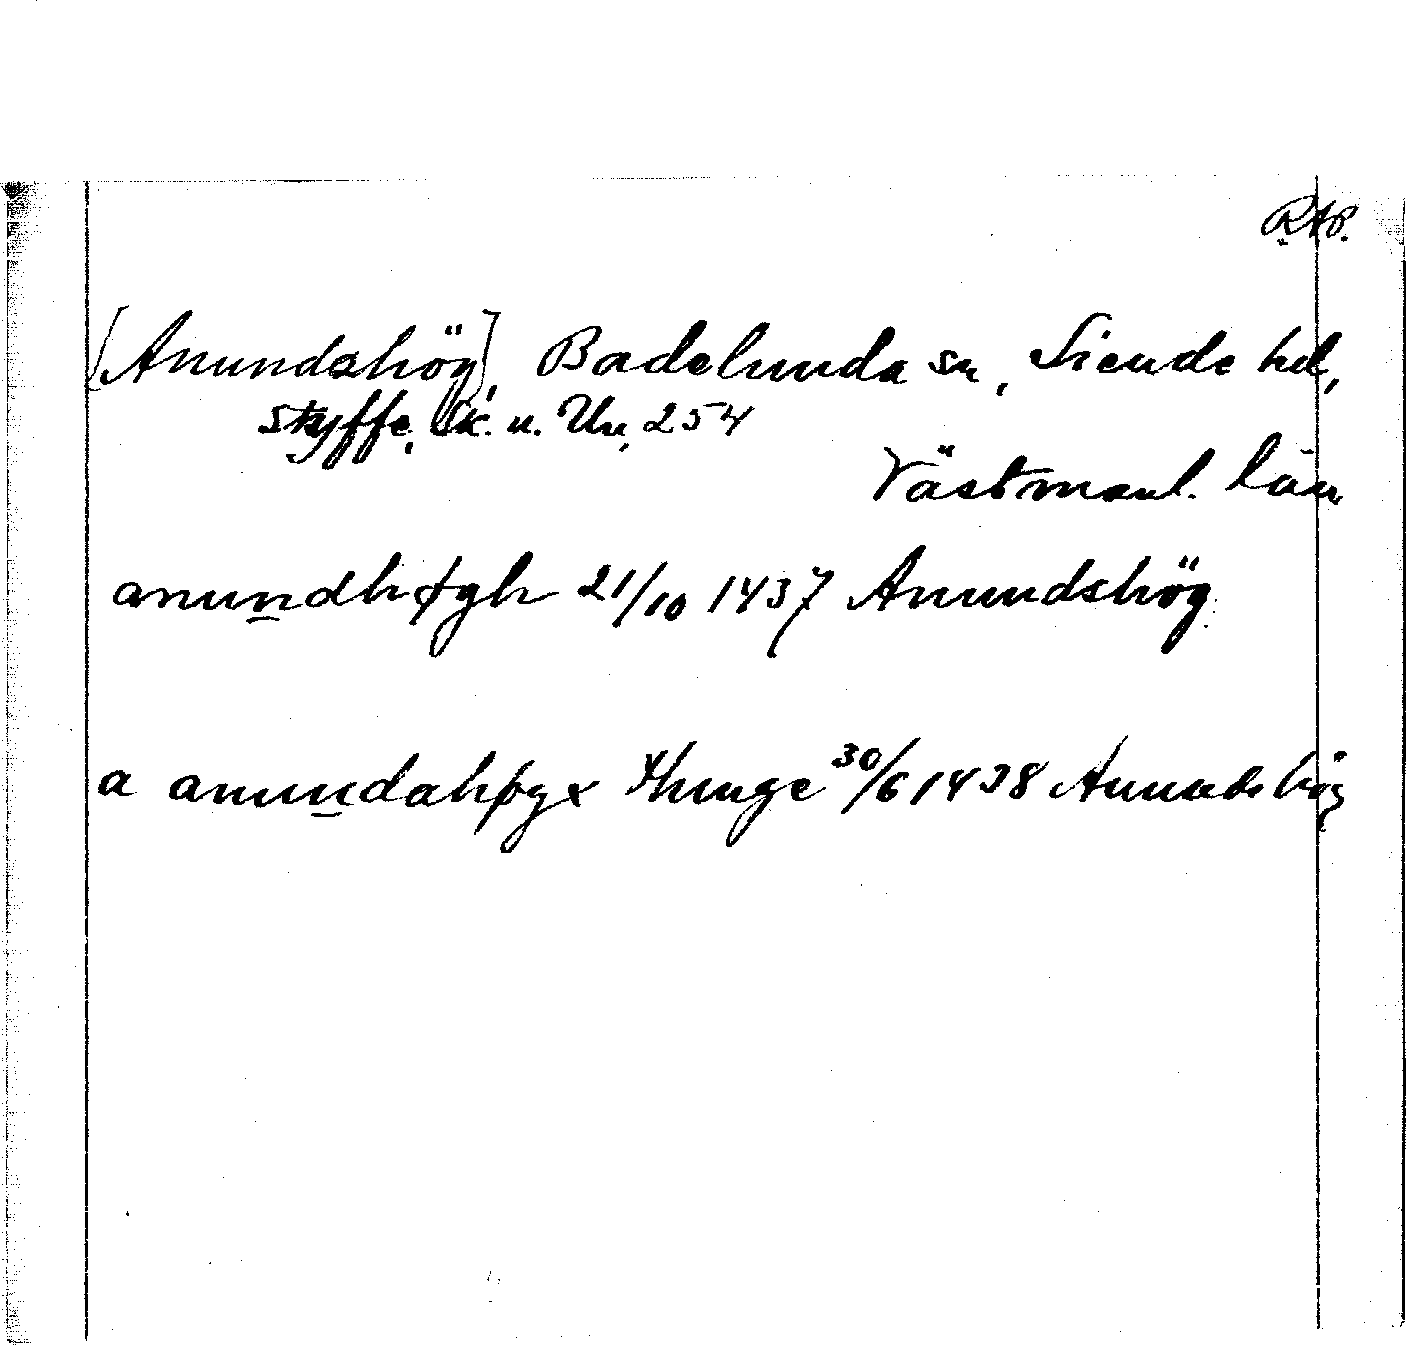 RAP.
[Anundshög], Badelunda sn, Siende hd,
Styffe, Sk. u. Un, 254
Västmanl. län
anundhøgh 21/10 1437 Anundshög
a anundahøgx thinge 30/6 1438 Anundshög